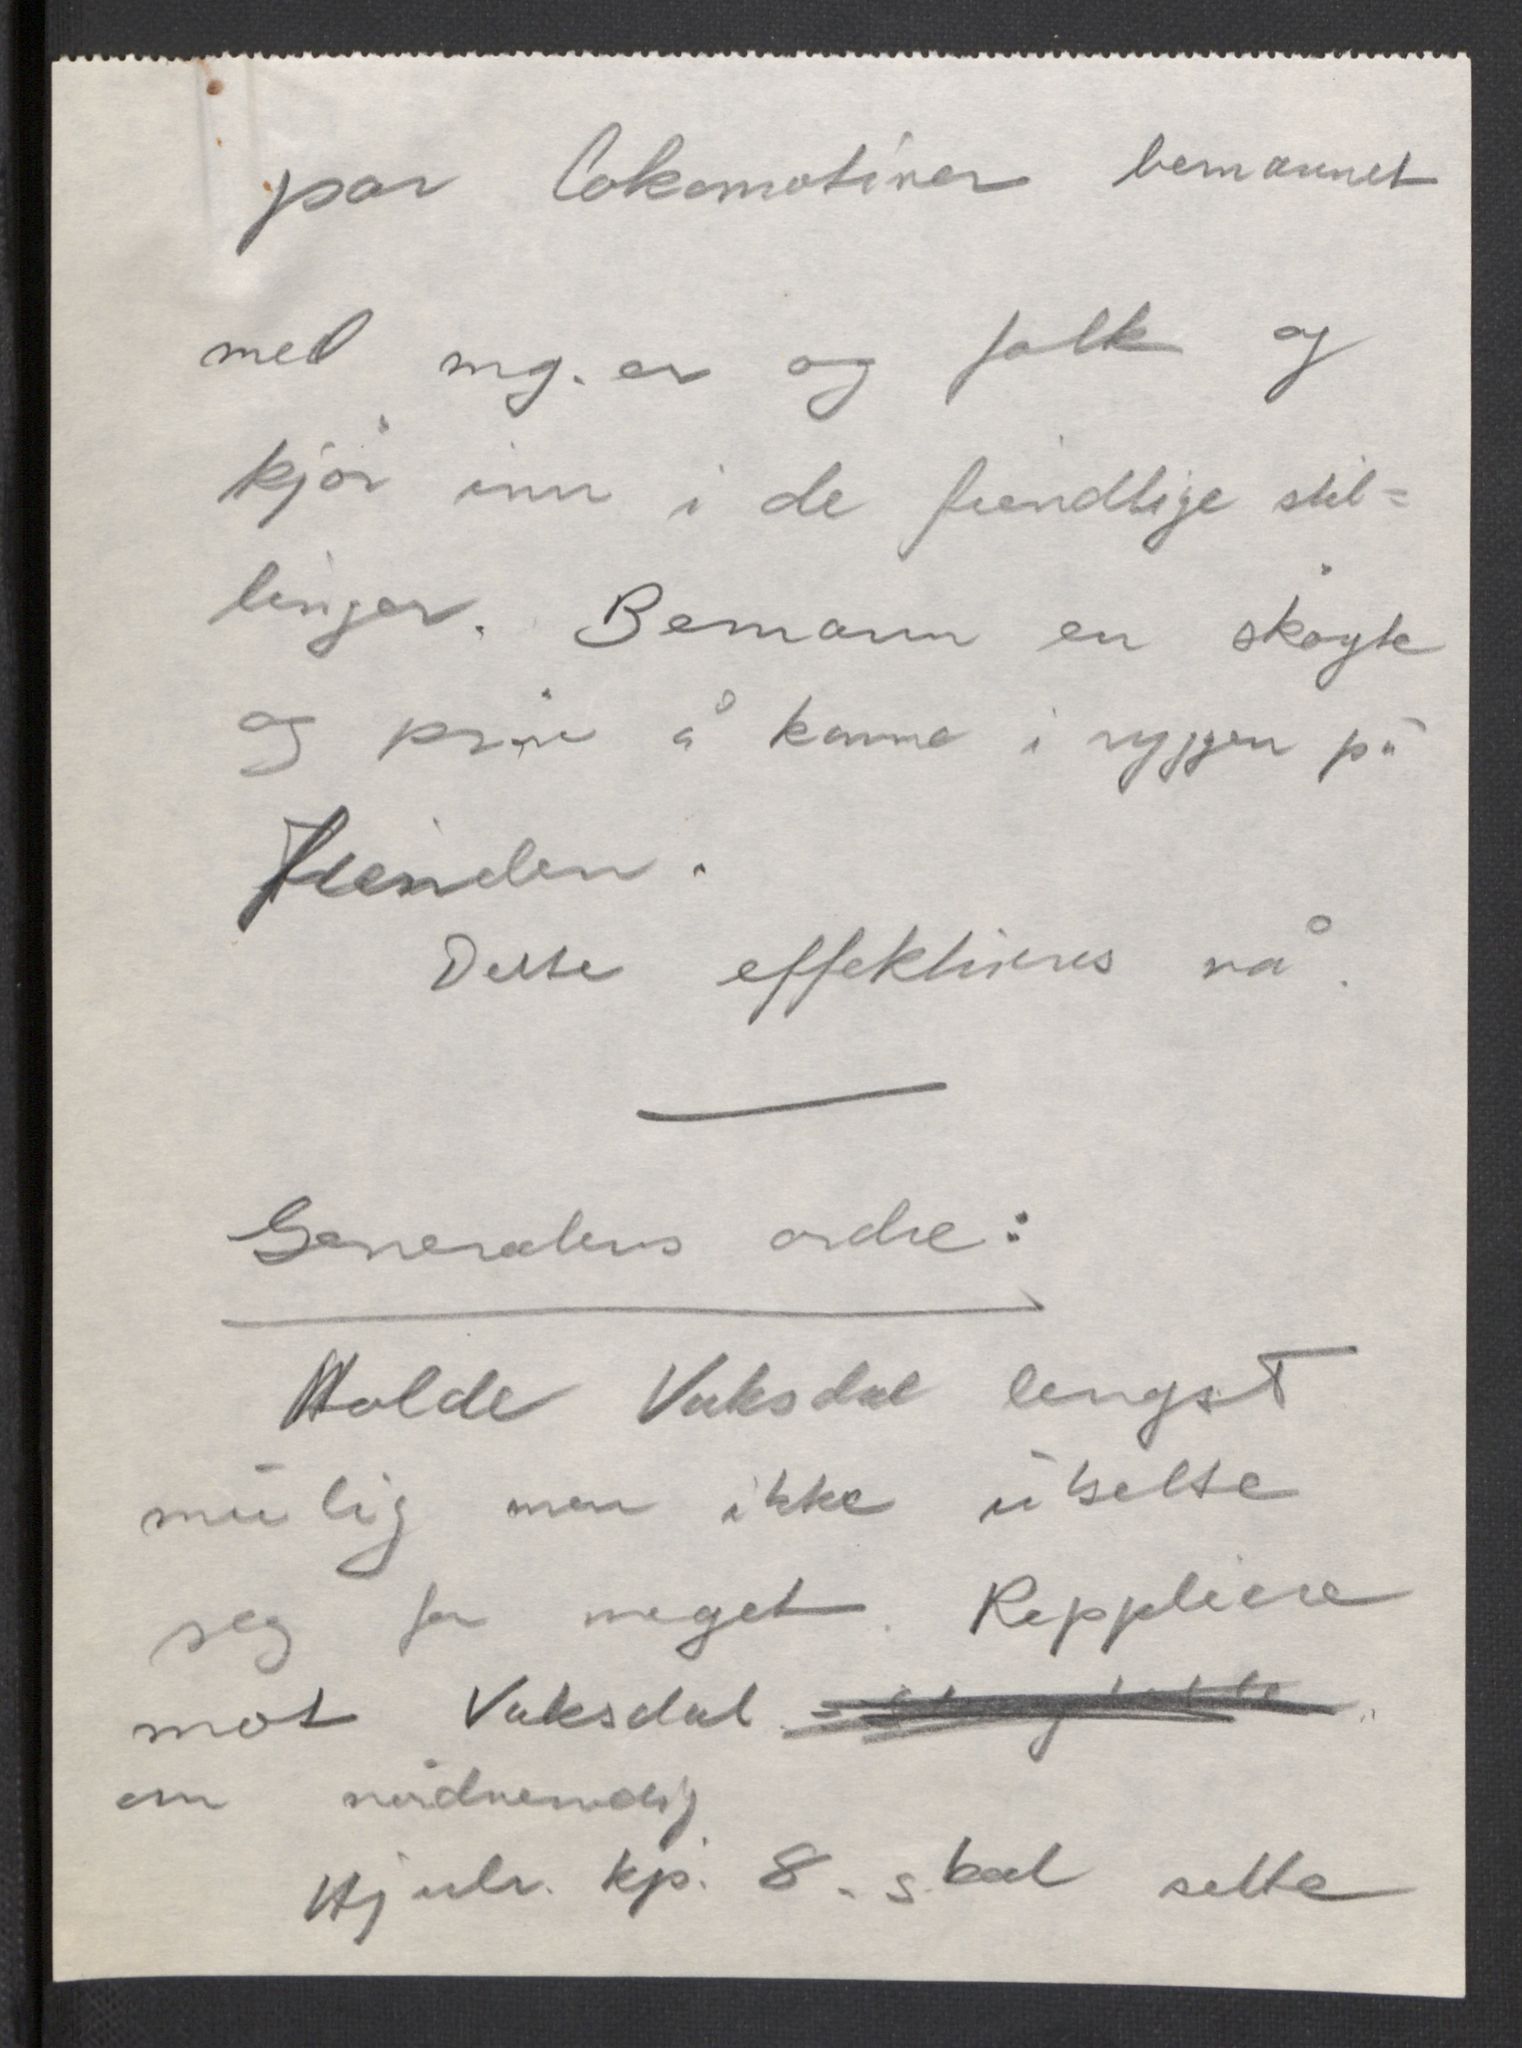 par lokomotiver bemannet
med mg.er og folk og
kjør inn i de fiendtlige stil-
linger. Bemann en skøyte
og prøv å komme i ryggen på
fienden.
Dette effektiveres nå.
Generalens ordre:
Holde Vaksdal lengst
mulig men ikke utsette
seg for meget. Reppliere
mot Vaksdal
om nødvendig
Hjulr. kp. 8. skal sette